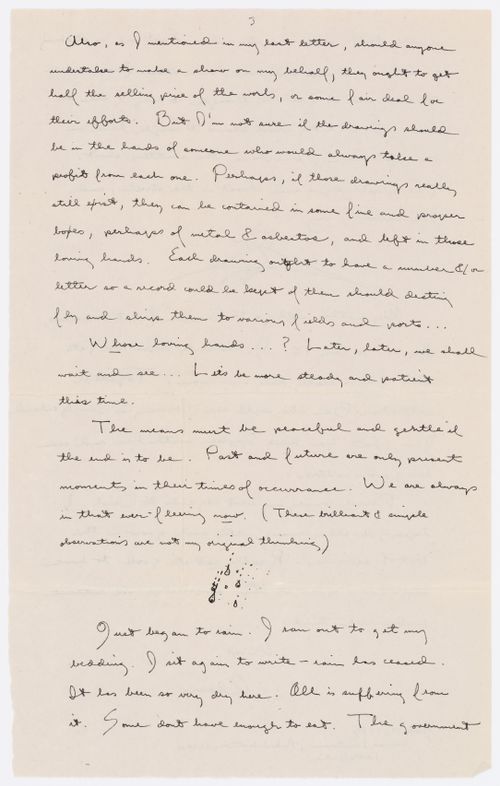 3
Also, as I mentioned in my last letter, should anyone
undertake to make a show on my behalf, they ought to get
half the selling price of the work, or some fair deal for
their efforts. But I'm not sure if the drawings should
be in the hands of someone who would always take a
profit from each one. Perhaps, if those drawings really
still exist, they can be contained in some fine and proper
boxes, perhaps of metal & asbestos, and left in those
loving hands. Each drawing ought to have a number &/or
letter so a record could be kept of them should destiny
fly and ships them to various fields and ports...
Whose loving hands...? Later, later, we shall
wait and see... Lets be more steady and patient
this time.
The means must be peaceful and gentle if
the end is to be. Past and future are only present
moments in their times of occurrance. We are always
in that ever-fleeing now. (These brilliant & simple
observations are not my original thinking)
Just began to rain. I ran out to get my
bedding. I sit again to write – rain has ceased.
It has been so very dry here. All is suffering from
it. Some dont have enough to eat. The government